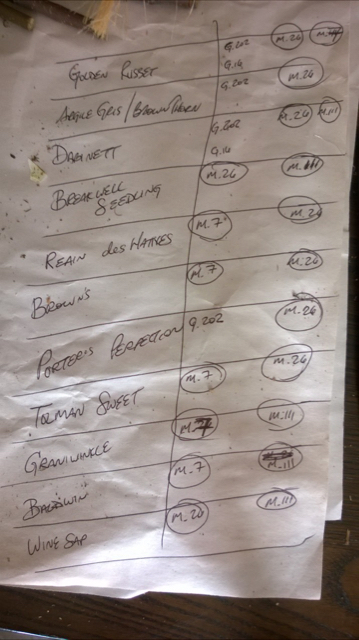 G.202 M.26
GOLDEN RUSSET G.16
G.202 M.26
ARGILE GRIS / BROWN THORN
G.202 M.26 M.111
DABINETT G.16
BREAKWELL SEEDLING M.26 M.111
M.7 M.26
REAIN des HATIVES
M.7 M.26
BROWN'S
PORTER'S PERFECTION G.202 M.26
M.7 M.26
TOLMAN SWEET
M.7 M.111
GRANIWINKLE
M.7 M.111
BALDWIN
M.26 M.111
WINE SAP